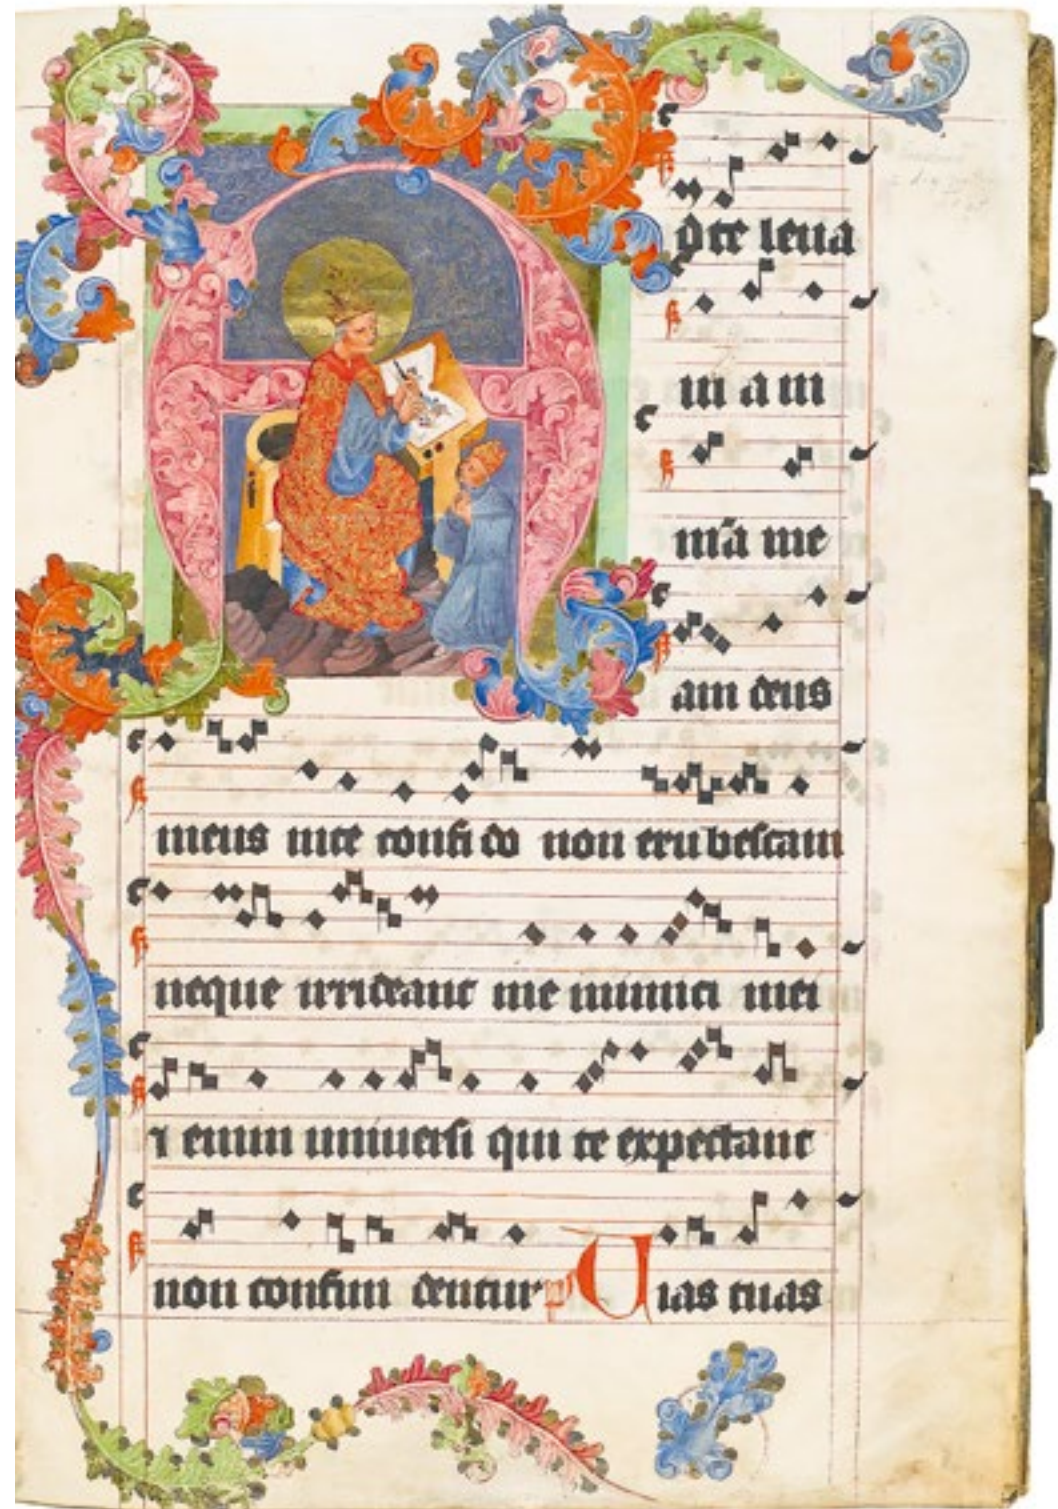 A
d te leua
ui a m
m̄a me
am deus
meus in te confi do non erubescam
neque irrideant me inimici mei
⁊ enim uniuersi qui te expectant
non confun dentur p̄s Uias tuas